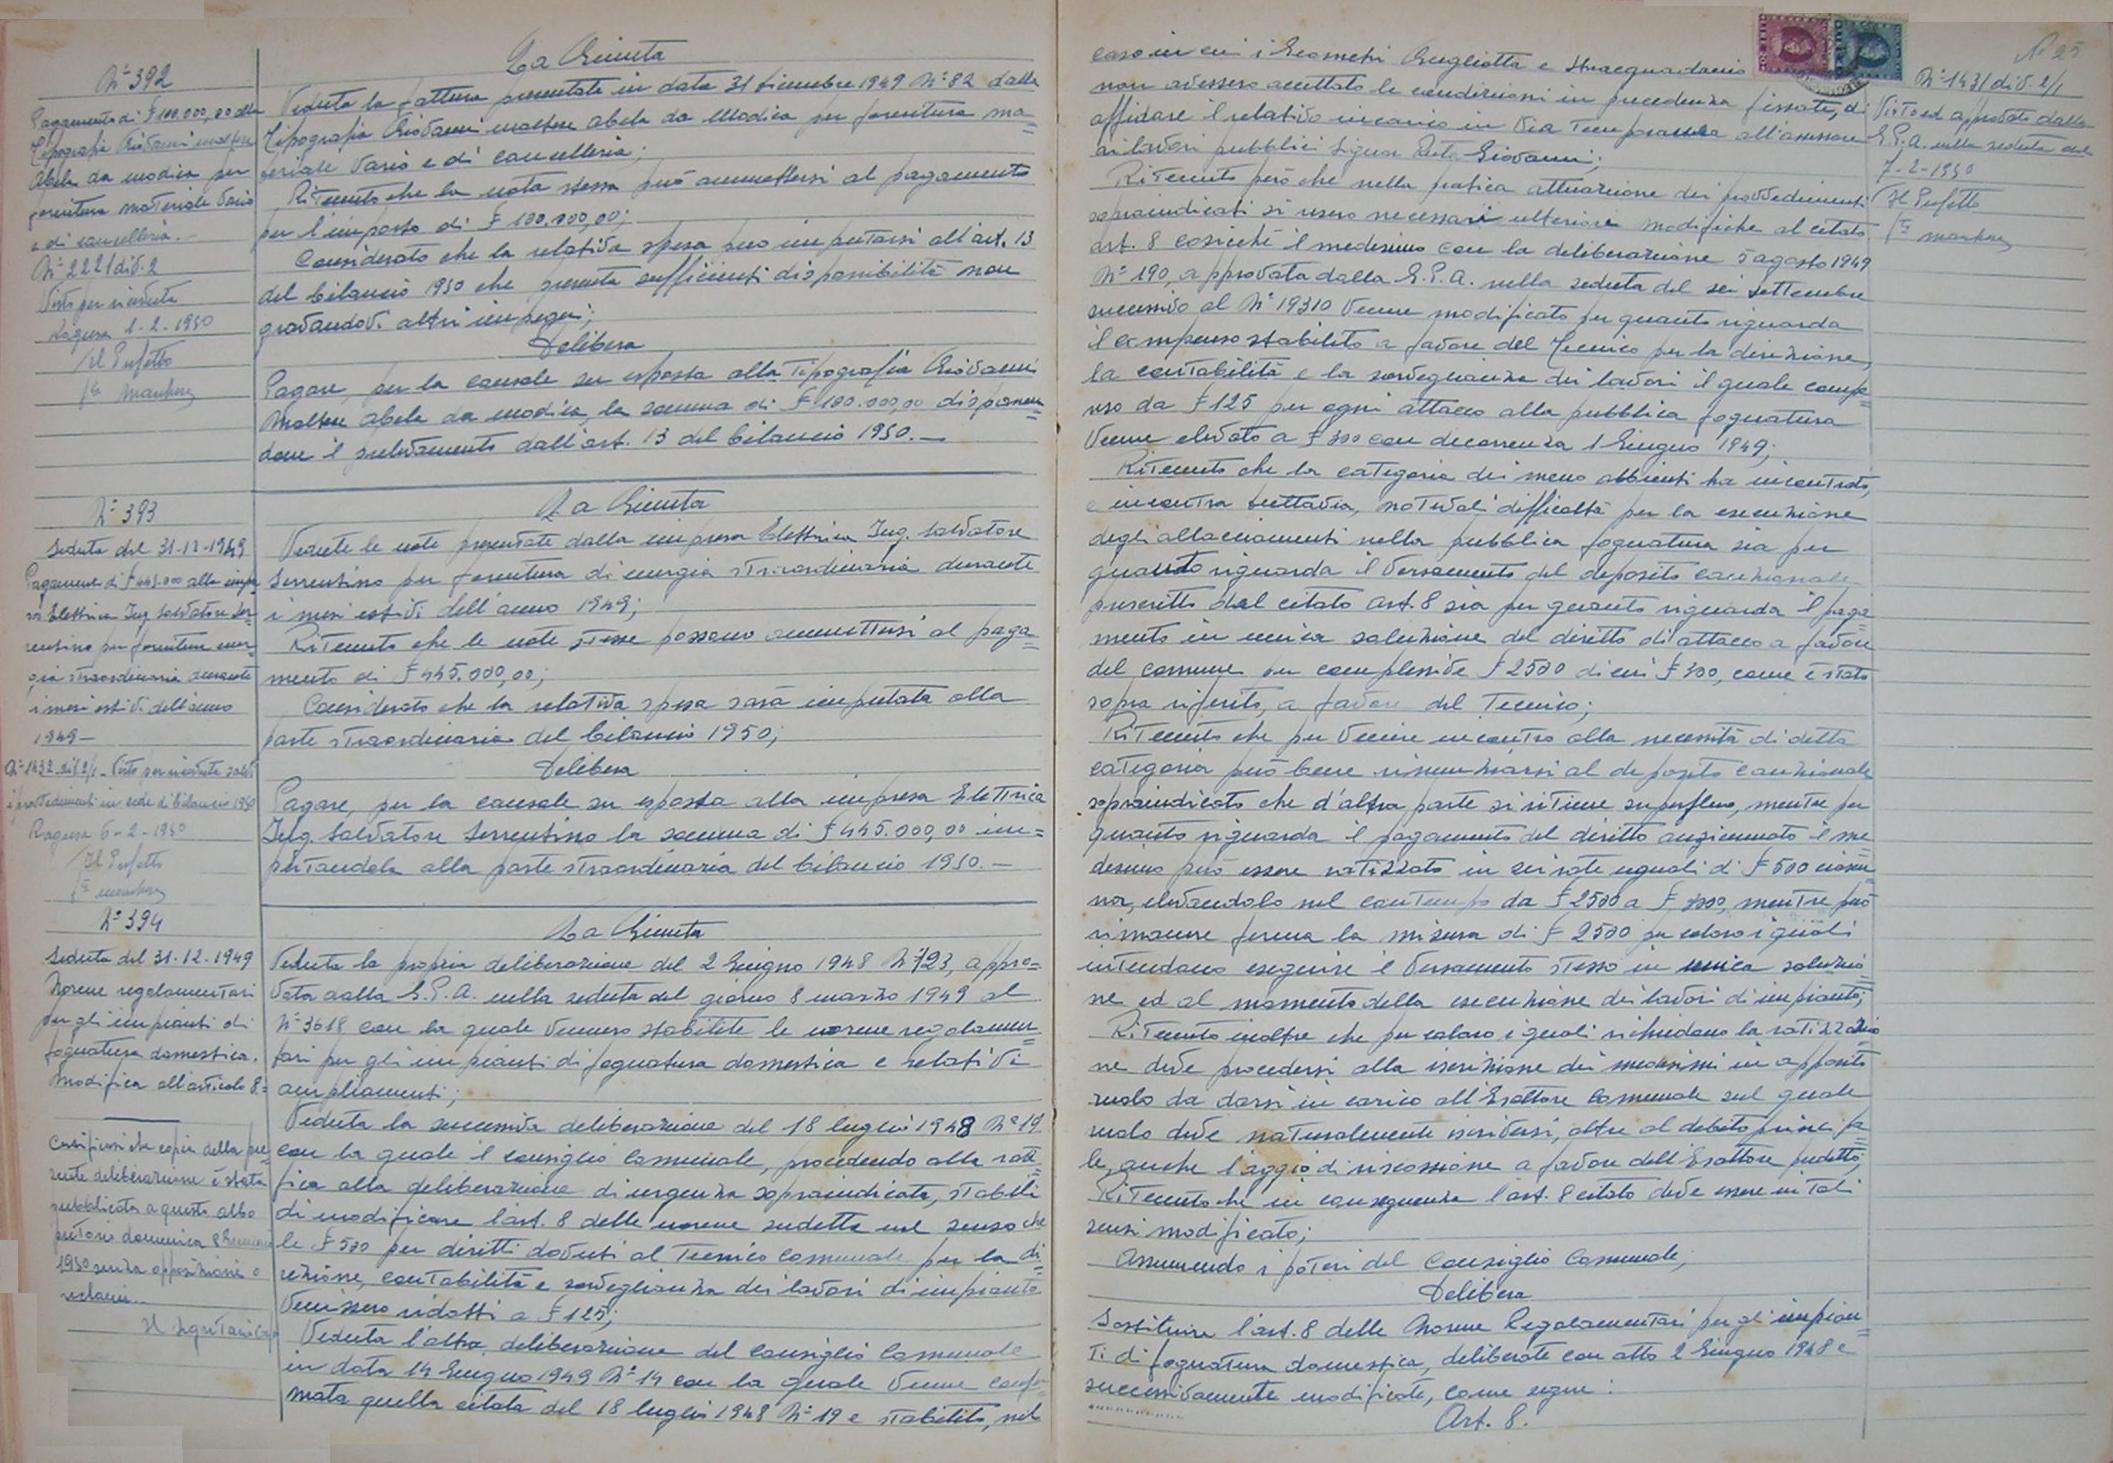 N° 392
Pagamento di £ 100.000,00 alla
Tipografia Giovanni Maltese
Abela da Modica per
fornitura materiale vario
e di cancelleria.-
N° 2221 div. 2
Visto per ricevuta
Ragusa 1-2-1950
Il Prefetto
La Giunta
Veduta la fattura presentata in data 31 Dicembre 1949 N° 82 dalla
Tipografia Giovanni Maltese Abela da Modica per fornitura ma=
teriale vario e di cancelleria;
Ritenuto che la nota stessa può ammettersi al pagamento
per l'importo di £ 100.000,00;
Considerato che la relativa spesa può imputarsi all'art. 13
del bilancio 1950 che presenta sufficienti disponibilità non
gravandovi altri impegni;
Delibera
Pagare, per la causale su esposta alla Tipografia Giovanni
Maltese Abela da Modica, la somma di £ 100.000,00 disponen=
done il prelevamento dall'art. 13 del bilancio 1950.-
N° 393
Seduta del 31-12-1949
Pagamento di £ 445.000 alla impre
sa Elettrica Ing. Salvatore Sor=
rentino per fornitura ener=
gia straordinaria durante
i mesi estivi dell'anno
1949-
N° 1432 div. 2/1 - Visto per ricevuta salvi
i provvedimenti in sede di bilancio 1950
Ragusa 6-2-1950
Il Prefetto
La Giunta
Vedute le note presentate dalla impresa Elettrica Ing. Salvatore
Sorrentino per fornitura di energia straordinaria durante
i mesi estivi dell'anno 1949;
Ritenuto che le note stesse possono ammettersi al paga=
mento di £ 445.000,00;
Considerato che la relativa spesa sarà imputata alla
parte straordinaria del bilancio 1950;
Delibera
Pagare, per la causale su esposta alla impresa Elettrica
Ing. Salvatore Sorrentino la somma di £ 445.000,00 im=
putandola alla parte straordinaria del bilancio 1950.-
N° 394
Seduta del 31-12-1949
Norme regolamentari
per gli impianti di
fognatura domestica.
Modifica all'articolo 8=
Certificasi che copia della pre=
sente deliberazione è stata
pubblicata a questo albo
pretorio domenica 8 Gennaio
1950 senza opposizioni o
reclami.-
Il Segretario Capo
La Giunta
Veduta la propria deliberazione del 2 Giugno 1948 N° 123, appro=
vata dalla G.P.A. nella seduta del giorno 8 marzo 1949 al
N° 3618 con la quale vennero stabilite le norme regolamen=
tari per gli impianti di fognatura domestica e relativi
ampliamenti;
Veduta la successiva deliberazione del 18 luglio 1948 N° 19
con la quale il consiglio Comunale, procedendo alla rati=
fica alla deliberazione di urgenza sopraindicata, stabilì
di modificare l'art. 8 delle norme sudette nel senso che
le £ 500 per diritti dovuti al Tecnico Comunale per la di=
rezione, contabilità e sorveglianza dei lavori di impianto
venissero ridotti a £ 125;
Veduta l'altra deliberazione del consiglio Comunale
in data 14 Giugno 1949 N° 14 con la quale venne confer=
mata quella citata del 18 luglio 1948 N° 19 e stabilito, nel
N° 25
caso in cui i Geometri Gugliotta e Stracquadanio
non avessero accettato le condizioni in precedenza fissate, di
affidare il relativo incarico in via temporanea all'assessore
ai lavori pubblici Signor Giovanni;
Ritenuto però che nella pratica attuazione dei provvedimenti
sopraindicati si resero necessari ulteriori modifiche al citato
art. 8 cosicché il medesimo con la deliberazione 5 agosto 1949
N° 190, approvata dalla G.P.A. nella seduta del sei settembre
successivo al N° 19310 venne modificato per quanto riguarda
il compenso stabilito a favore del Tecnico per la direzione,
la contabilità e la sorveglianza dei lavori il quale compe=
nso da £ 125 per ogni attacco alla pubblica fognatura
venne elevato a £ 300 con decorrenza 1 Giugno 1949;
Ritenuto che la categoria dei meno abbienti ha incontrato,
e incontra tuttavia, notevoli difficoltà per la esecuzione
degli allacciamenti nella pubblica fognatura sia per
quanto riguarda il versamento del deposito cauzionale
prescritto dal citato art. 8 sia per quanto riguarda il paga=
mento in unica soluzione del diritto di attacco a favore
del comune per complessive £ 2500 di cui £ 300, come è stato
sopra riferito, a favore del Tecnico;
Ritenuto che per venire incontro alla necessità di detta
categoria può bene rinunziarsi al deposito cauzionale
sopraindicato che d'altra parte si ritiene superfluo, mentre per
quanto riguarda il pagamento del diritto anzicennato il me=
desimo può essere ratizzato in sei rate uguali di £ 500 ciascu=
na, elevandolo nel contempo da £ 2500 a £ 3000, mentre può
rimanere ferma la misura di £ 2500 per coloro i quali
intendano eseguire il versamento stesso in unica soluzio=
ne ed al momento della esecuzione dei lavori di impianto;
Ritenuto inoltre che per coloro i quali richiedano la ratizzazio
ne deve procedersi alla iscrizione dei medesimi in apposito
ruolo da darsi in carico all'Esattore Comunale sul quale
ruolo deve naturalmente iscriversi, oltre al debito principa=
le, anche l'aggio di riscossione a favore dell'Esattore predetto;
Ritenuto che in conseguenza l'art. 8 citato deve essere in tali
sensi modificato;
Assumendo i poteri del Consiglio Comunale;
Delibera
Sostituire l'art. 8 delle Norme Regolamentari per gli impian=
ti di fognatura domestica, deliberate con atto 2 Giugno 1948 e
successivamente modificate, come segue:
Art. 8.
N° 1431 div. 2/1
Visto ed approvato dalla
G.P.A. nella seduta del
7-2-1950
Il Prefetto